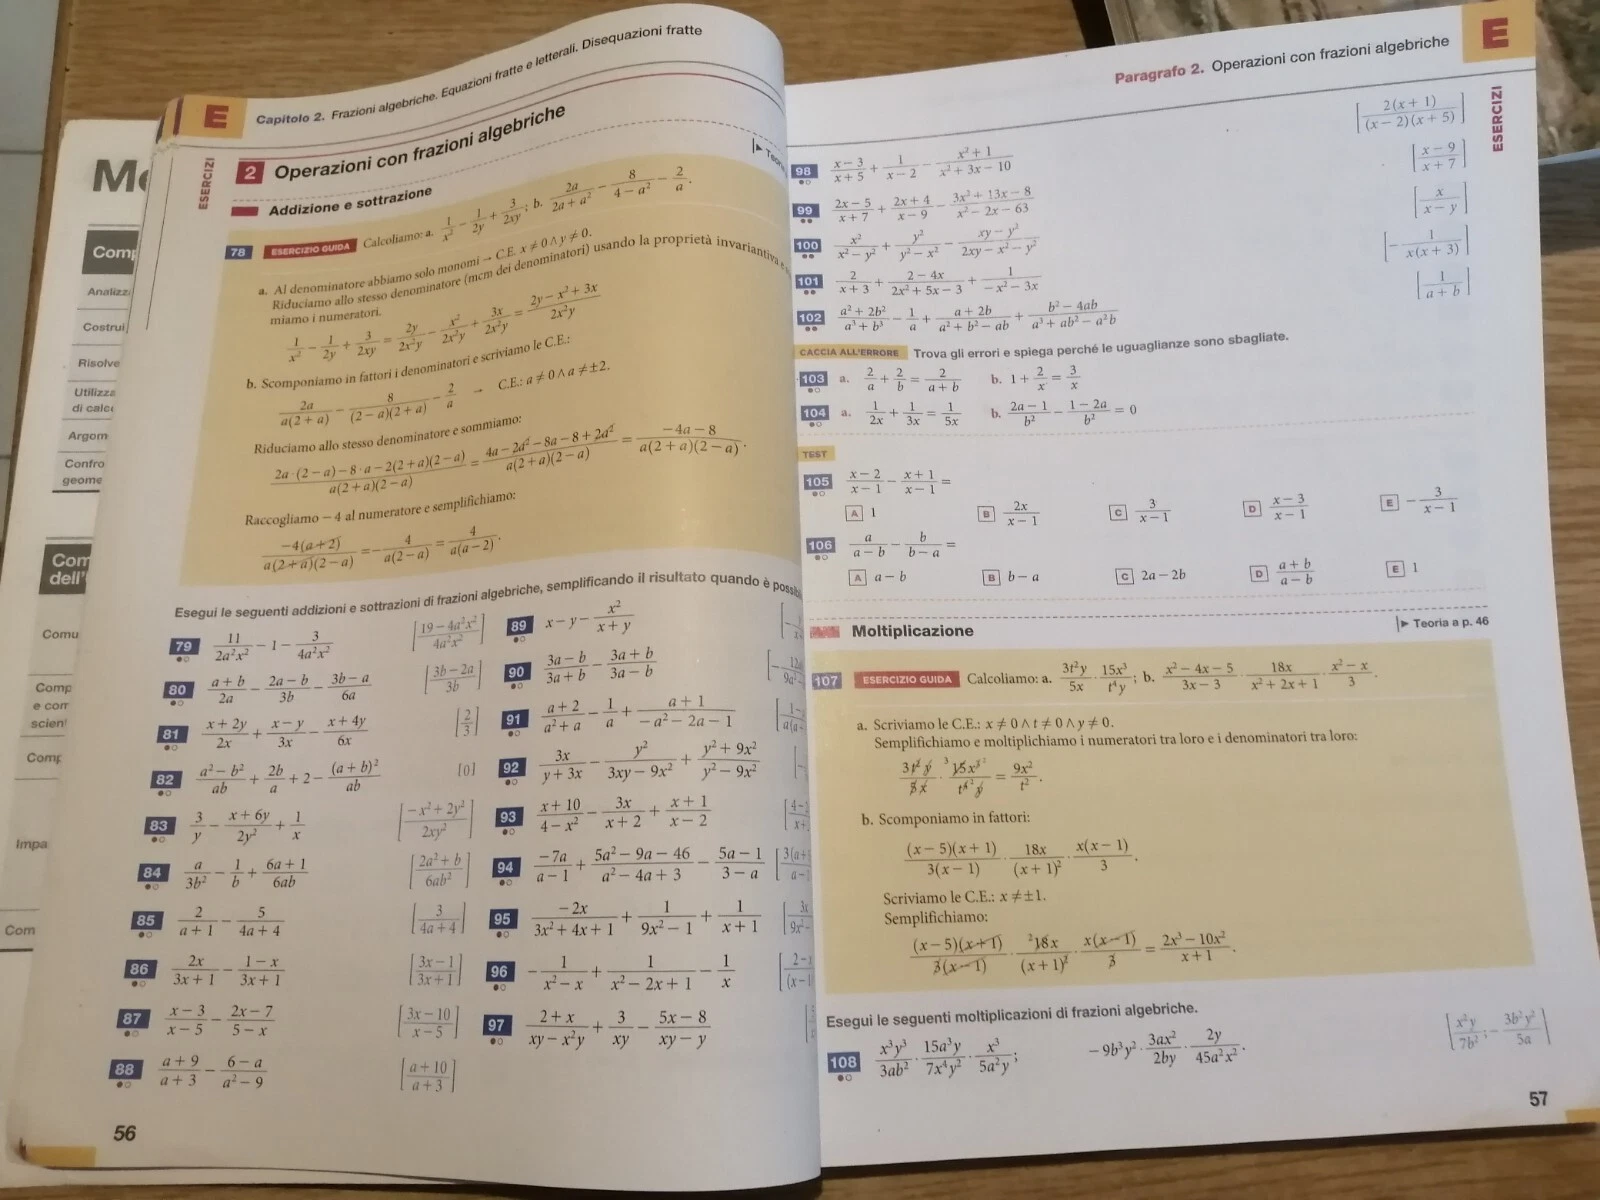 Me
Comp
Analizz
Costrui
Risolve
Utilizza
di calco
Argom
Confro
geome
Com
dell'
Comu
Comp
e com
scien
Comp
Impa
Com
E
Capitolo 2. Frazioni algebriche. Equazioni fratte e letterali. Disequazioni fratte
ESERCIZI
2 Operazioni con frazioni algebriche
Addizione e sottrazione
78 ESERCIZIO GUIDA Calcoliamo: a. 1/x² − 1/2y + 3/2xy; b. 2a/(2a + a²) − 8/(4 − a²) − 2/a.
a. Al denominatore abbiamo solo monomi → C.E. x ≠ 0 ∧ y ≠ 0.
Riduciamo allo stesso denominatore (mcm dei denominatori) usando la proprietà invariantiva e
miamo i numeratori.
1/x² − 1/2y + 3/2xy = 2y/2x²y − x²/2x²y + 3x/2x²y = (2y − x² + 3x)/2x²y
b. Scomponiamo in fattori i denominatori e scriviamo le C.E.:
2a/a(2 + a) − 8/(2 − a)(2 + a) − 2/a → C.E.: a ≠ 0 ∧ a ≠ ±2.
Riduciamo allo stesso denominatore e sommiamo:
(2a · (2 − a) − 8 · a − 2(2 + a)(2 − a))/a(2 + a)(2 − a) = (4a − 2a² − 8a − 8 + 2a²)/a(2 + a)(2 − a) = (−4a − 8)/a(2 + a)(2 − a).
Raccogliamo − 4 al numeratore e semplifichiamo:
−4(a + 2)/a(2 + a)(2 − a) = −4/a(2 − a) = 4/a(a − 2).
Esegui le seguenti addizioni e sottrazioni di frazioni algebriche, semplificando il risultato quando è possibi
79 11/2a²x² − 1 − 3/4a²x² [(19 − 4a²x²)/4a²x²]
80 (a + b)/2a − (2a − b)/3b − (3b − a)/6a [(3b − 2a)/3b]
81 (x + 2y)/2x + (x − y)/3x − (x + 4y)/6x [2/3]
82 (a² − b²)/ab + 2b/a + 2 − (a + b)²/ab [0]
83 3/y − (x + 6y)/2y² + 1/x [(−x² + 2y²)/2xy²]
84 a/3b² − 1/b + (6a + 1)/6ab [(2a² + b)/6ab²]
85 2/(a + 1) − 5/(4a + 4) [3/(4a + 4)]
86 2x/(3x + 1) − (1 − x)/(3x + 1) [(3x − 1)/(3x + 1)]
87 (x − 3)/(x − 5) − (2x − 7)/(5 − x) [(3x − 10)/(x − 5)]
88 (a + 9)/(a + 3) − (6 − a)/(a² − 9) [(a + 10)/(a + 3)]
89 x − y − x²/(x + y)
90 (3a − b)/(3a + b) − (3a + b)/(3a − b)
91 (a + 2)/(a² + a) − 1/a + (a + 1)/(−a² − 2a − 1)
92 3x/(y + 3x) − y²/(3xy − 9x²) + (y² + 9x²)/(y² − 9x²)
93 (x + 10)/(4 − x²) − 3x/(x + 2) + (x + 1)/(x − 2)
94 −7a/(a − 1) + (5a² − 9a − 46)/(a² − 4a + 3) − (5a − 1)/(3 − a)
95 −2x/(3x² + 4x + 1) + 1/(9x² − 1) + 1/(x + 1)
96 −1/(x² − x) + 1/(x² − 2x + 1) − 1/x
97 (2 + x)/(xy − x²y) + 3/xy − (5x − 8)/(xy − y)
56
Paragrafo 2. Operazioni con frazioni algebriche
E
ESERCIZI
98 (x − 3)/(x + 5) + 1/(x − 2) − (x² + 1)/(x² + 3x − 10) [2(x + 1)/(x − 2)(x + 5)]
99 (2x − 5)/(x + 7) + (2x + 4)/(x − 9) − (3x² + 13x − 8)/(x² − 2x − 63) [(x − 9)/(x + 7)]
100 x²/(x² − y²) + y²/(y² − x²) − (xy − y²)/(2xy − x² − y²) [x/(x − y)]
101 2/(x + 3) + (2 − 4x)/(2x² + 5x − 3) + 1/(−x² − 3x) [−1/x(x + 3)]
102 (a² + 2b²)/(a³ + b³) − 1/a + (a + 2b)/(a² + b² − ab) + (b² − 4ab)/(a³ + ab² − a²b) [1/(a + b)]
CACCIA ALL'ERRORE Trova gli errori e spiega perché le uguaglianze sono sbagliate.
103 a. 2/a + 2/b = 2/(a + b) b. 1 + 2/x = 3/x
104 a. 1/2x + 1/3x = 1/5x b. (2a − 1)/b² − (1 − 2a)/b² = 0
TEST
105 (x − 2)/(x − 1) − (x + 1)/(x − 1) =
A 1 B 2x/(x − 1) C 3/(x − 1) D (x − 3)/(x − 1) E −3/(x − 1)
106 a/(a − b) − b/(b − a) =
A a − b B b − a C 2a − 2b D (a + b)/(a − b) E 1
Moltiplicazione
▶ Teoria a p. 46
107 ESERCIZIO GUIDA Calcoliamo: a. 3t²y/5x · 15x³/t⁴y; b. (x² − 4x − 5)/(3x − 3) · 18x/(x² + 2x + 1) · (x² − x)/3.
a. Scriviamo le C.E.: x ≠ 0 ∧ t ≠ 0 ∧ y ≠ 0.
Semplifichiamo e moltiplichiamo i numeratori tra loro e i denominatori tra loro:
3t²y/5x · 15x³/t⁴y = 9x²/t².
b. Scomponiamo in fattori:
(x − 5)(x + 1)/3(x − 1) · 18x/(x + 1)² · x(x − 1)/3.
Scriviamo le C.E.: x ≠ ±1.
Semplifichiamo:
(x − 5)(x + 1)/3(x − 1) · 18x/(x + 1)² · x(x − 1)/3 = (2x³ − 10x²)/(x + 1).
Esegui le seguenti moltiplicazioni di frazioni algebriche.
108 x³y³/3ab² · 15a³y/7x⁴y² · x³/5a²y; −9b³y² · 3ax²/2by · 2y/45a²x². [x²y/7b²; −3b²y²/5a]
57